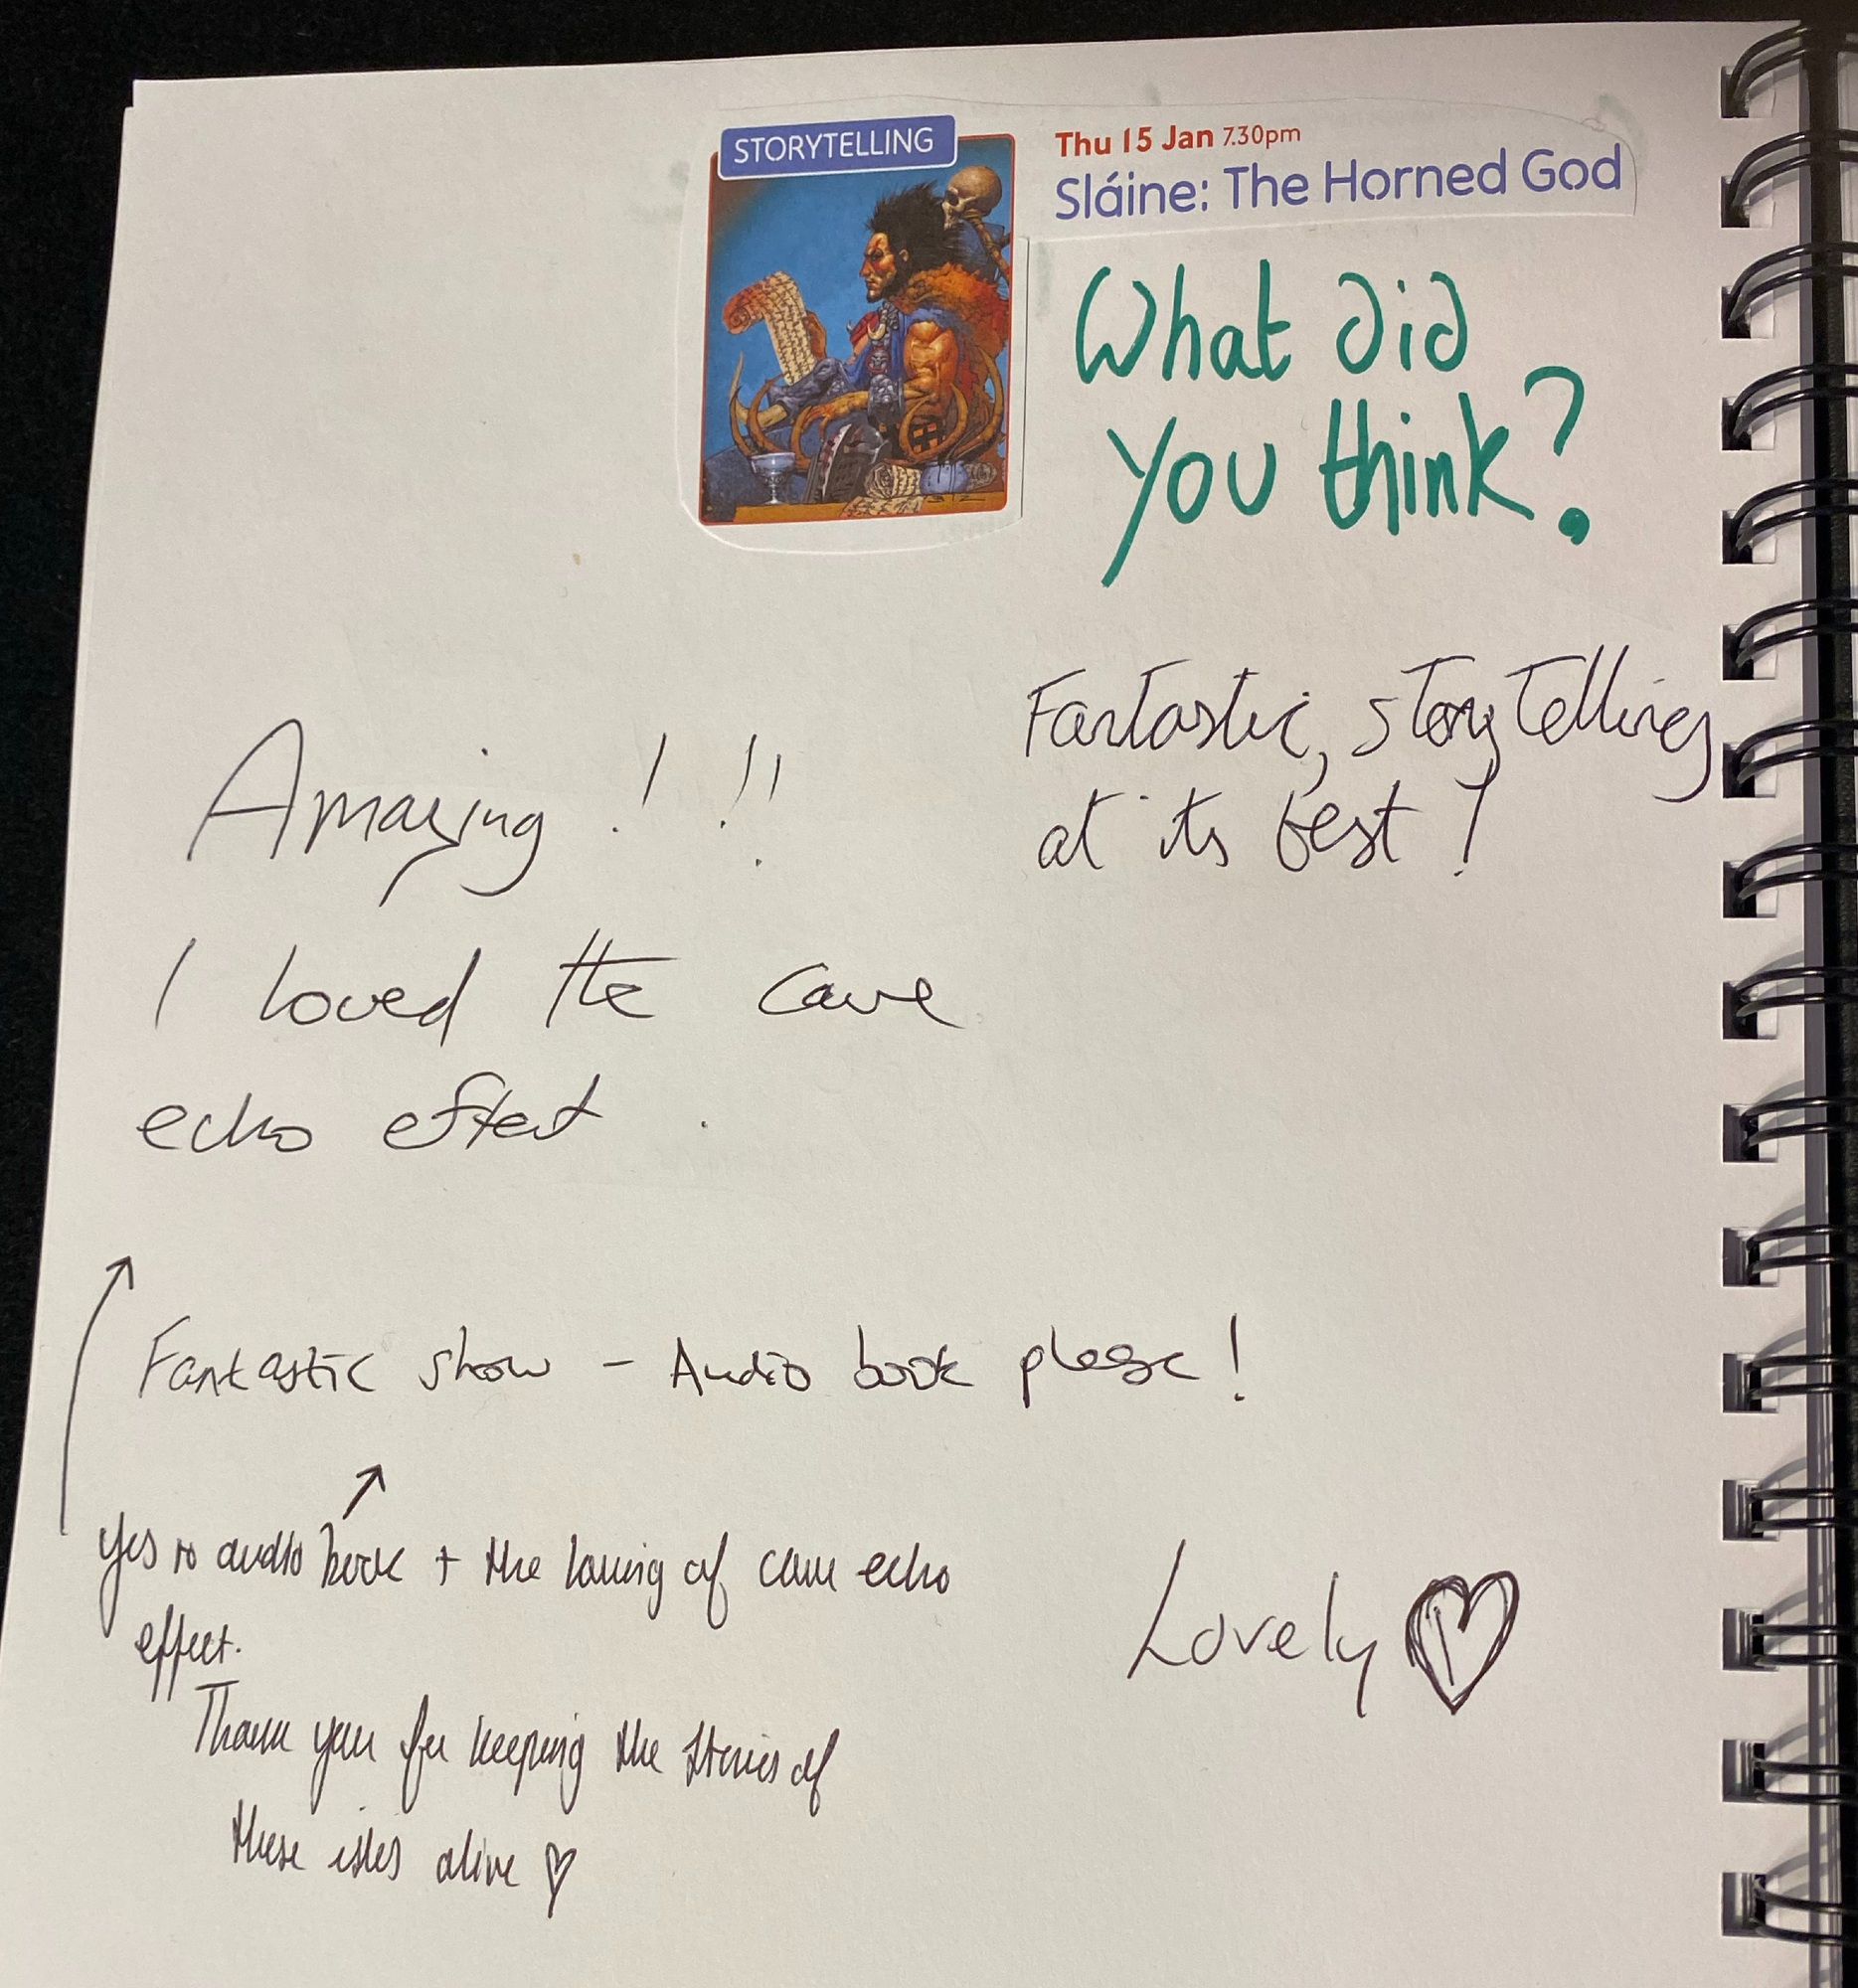 STORYTELLING
Thu 15 Jan 7.30pm
Sláine: The Horned God
What did
you think?
Fantastic, storytelling
at its best!
Amazing! !!
I loved the cave
echo effect.
Fantastic show - Audio book please!
yes to audio book + the loving of cave echo
effect.
Thank you for keeping the stories of
these isles alive ♡
Lovely ♡